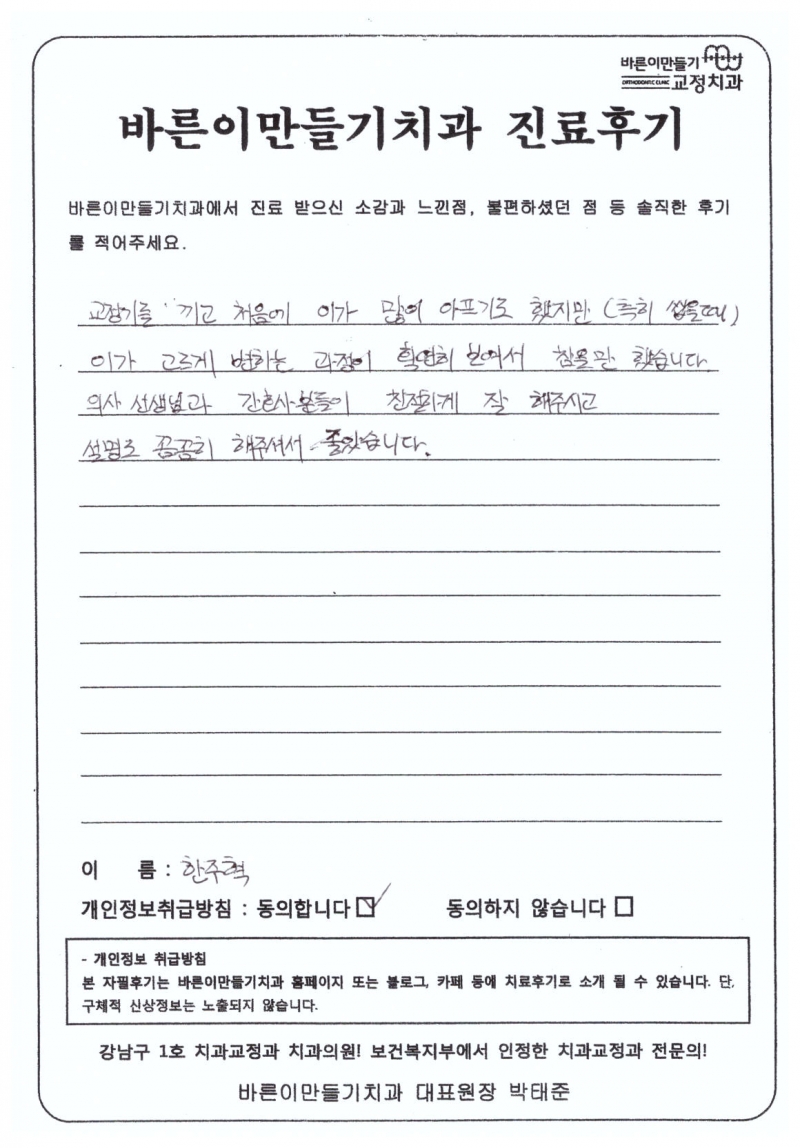 바른이만들기
ORTHODONTIC CLINIC 교정치과
바른이만들기치과 진료후기
바른이만들기치과에서 진료 받으신 소감과 느낀점, 불편하셨던 점 등 솔직한 후기
를 적어주세요.
교정기를 끼고 처음에 이가 많이 아프기도 했지만 (특히 씹을때)
이가 고르게 변하는 과정이 확연히 보여서 참을만 했습니다.
의사 선생님과 간호사분들이 친절하게 잘 해주시고
설명도 꼼꼼히 해주셔서 좋았습니다.
이 름 : 한주혁
개인정보취급방침 : 동의합니다 ☑ 동의하지 않습니다 □
- 개인정보 취급방침
본 자필후기는 바른이만들기치과 홈페이지 또는 블로그, 카페 등에 치료후기로 소개 될 수 있습니다. 단,
구체적 신상정보는 노출되지 않습니다.
강남구 1호 치과교정과 치과의원! 보건복지부에서 인정한 치과교정과 전문의!
바른이만들기치과 대표원장 박태준